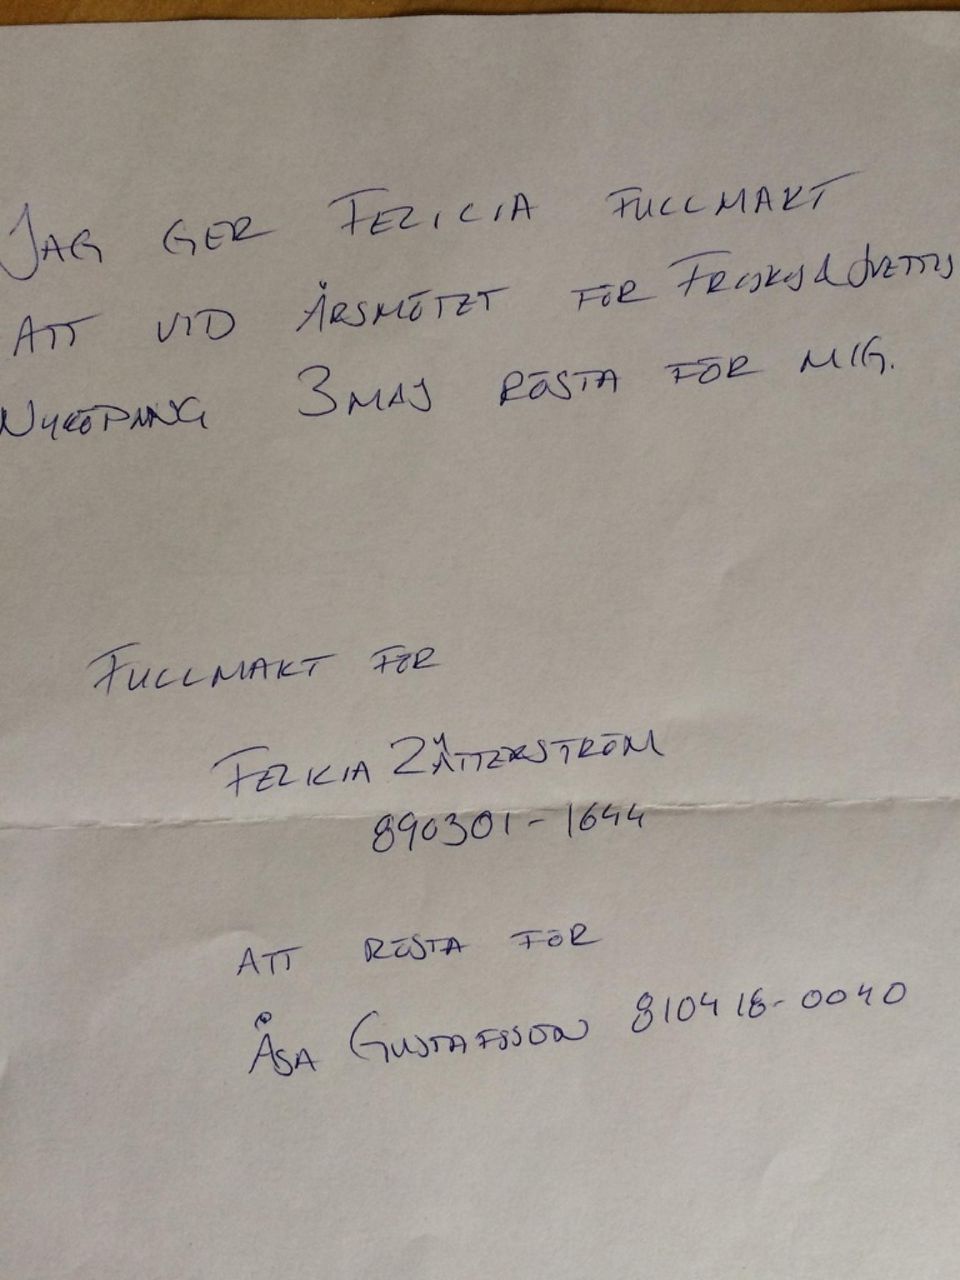 JAG GER FELICIA FULLMAKT
ATT VID ÅRSMÖTET FÖR FRISKIS & SVETTIS
NYKÖPING 3 MAJ RÖSTA FÖR MIG.
FULLMAKT FÖR
FELICIA ZÄTTERSTRÖM
890301-1644
ATT RÖSTA FÖR
ÅSA GUSTAFSSON 810418-0040